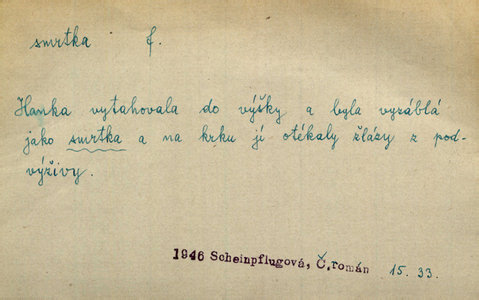 smrtka f.
Hanka vytahovala do výšky a byla vyzáblá
jako smrtka a na krku jí otékaly žlázy z pod-
výživy.
1946 Scheinpflugová, Č. román 15. 33.